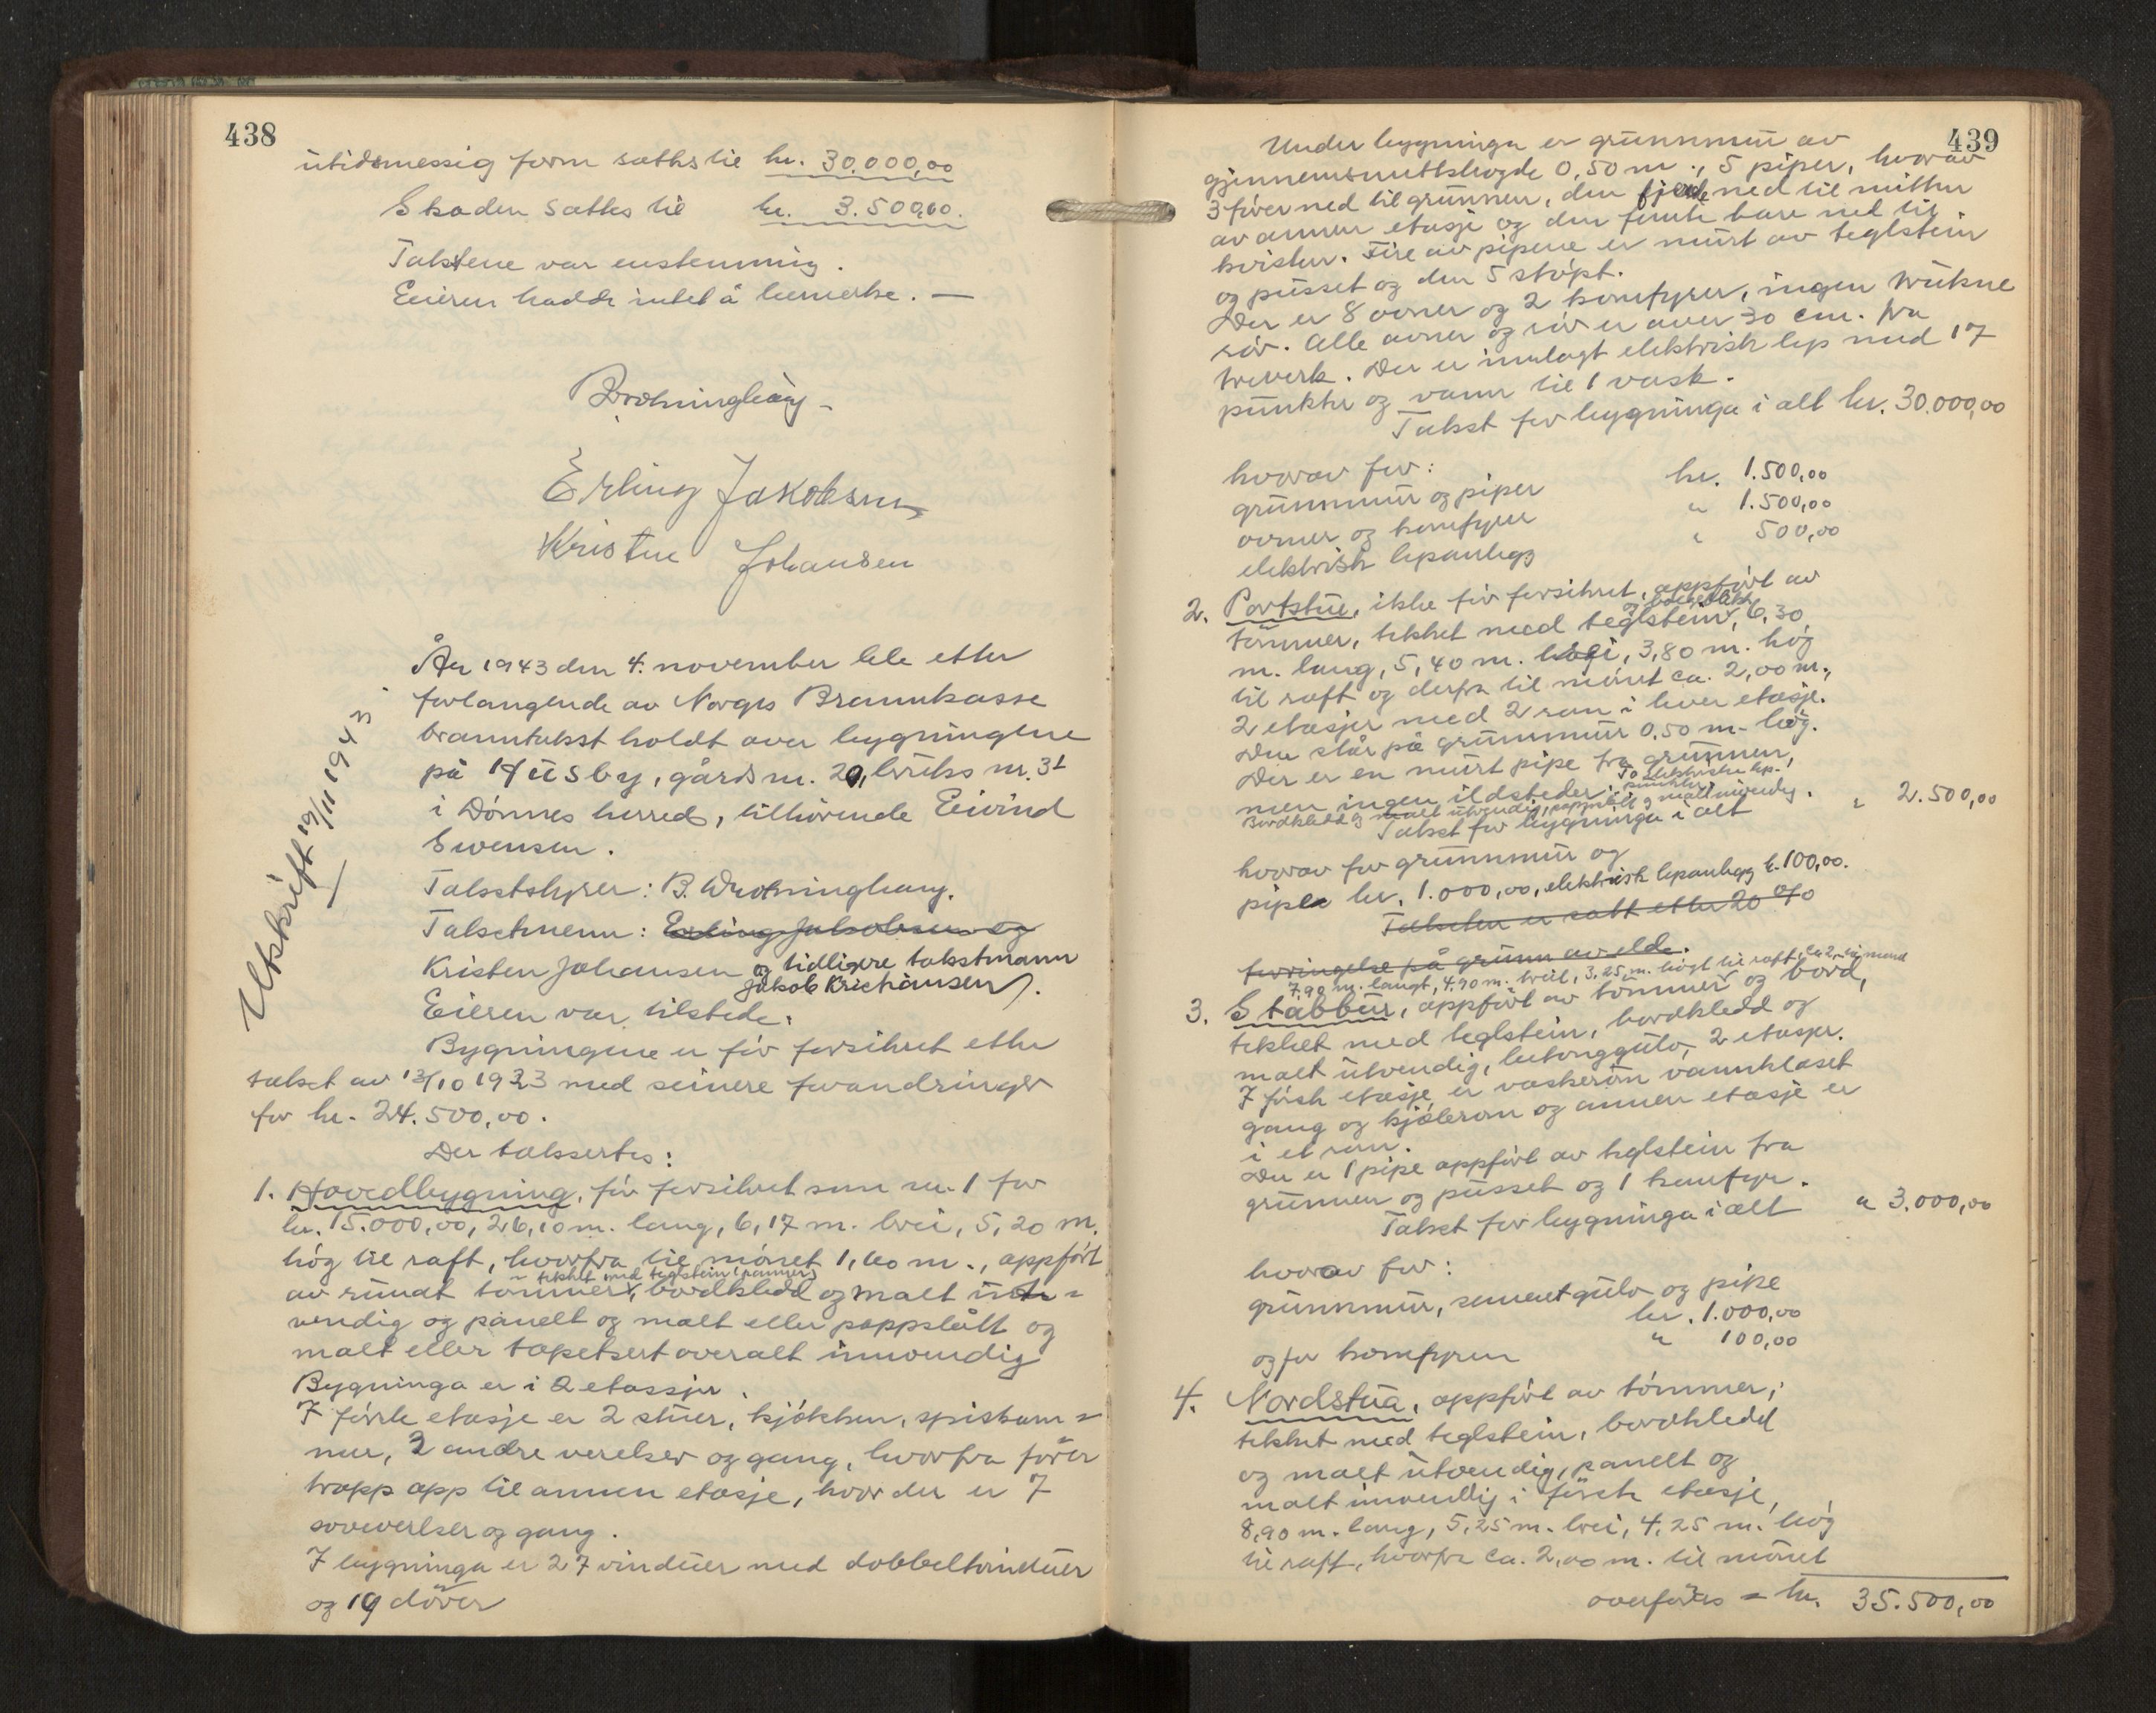 438
utidsmessig form sættes til kr. 30.000,00
Skaden sættes til kr. 3.500,00.
Takstene var enstemmig.
Eieren hadde intet å bemerke. —
Erling Jakobsen
Kristen Johansen
Utskrift 19/11 1943
År 1943 den 4. november ble etter
forlangende av Norges Brannkasse
branntakst holdt over bygningene
på Husby, gårdsnr. 20, bruks nr. 31
i Dønnes herred, tilhørende Eivind
Svensen.
Takstskyrer: B.
Takstmenn: Erling Jakobsen og
Kristen Johansen og tidligere takstmann
Jakob Krichansen).
Eieren var tilstede.
Bygningene er før forsikret etter
takst av 13/10 1933 med seinere forandringer
for kr. 24.500,00.
Der taksertes:
1. Hovedbygning, før forsikret som nr. 1 for
kr. 15.000,00, 26,10 m. lang, 6,17 m. brei, 5,20 m.
høg til raft, hvorfra til mønet 1,60 m., oppført
tekket med teglstein (panner)
av rundt tømmer, bordkledd og malt ut-
vendig og panelt og malt eller pappslått og
malt eller tapetsert overalt innvendig
Bygninga er i 2 etassjer.
I første etasje er 2 stuer, kjøkken, spiskam=
mer, 2 andre værelser og gang, hvorfra fører
trapp opp til annen etasje, hvor der er 7
soveværelser og gang.
I bygninga er 27 vinduer med dobbeltvinduer
og 19 dører
439
Under bygninga er grunnmur av
gjennemsnittshøgde 0,50 m., 5 piper, hvorav
3 fører ned til grunnen, den fjerde ned til midten
av annen etasje og den femte bare ned til
kvisten. Fire av pipene er murt av teglstein
og pusset og den 5 støpt.
Der er 8 ovner og 2 komfyrer, ingen trukne
rør. Alle ovner og rør er over 30 cm. fra
treverk. Der er innlagt elektrisk lys med 17
punkter og vann til 1 vask.
Takst for bygninga i alt kr. 30.000,00
hvorav for:
grunnmur og piper kr. 1.500,00
ovner og komfyrer " 1.500,00
elektrisk lysanlegg " 500,00
2. Portstue, ikke før forsikret, oppført av
tømmer, tekket med teglstein, 6,30
m. lang, 5,40 m. brei, 3,80 m. høg
til raft og derfra til mønet ca. 2,00 m.,
2 etasjer med 2 rom i hver etasje.
Den står på grunnmur 0,50 m. høg.
Der er en murt pipe fra grunnen,
To elektriske lys-
punkter.
men ingen ildsteder.
Bordkledd og malt utvendig, pappslått og malt innvendig.
Takst for bygninga i alt " 2.500,00
hvorav for grunnmur og
pipe kr. 1.000,00, elektrisk lysanlegg k. 100,00.
Taksten er satt etter 20 %
forringelse på grunn av elde.
7,90 m. langt, 4,90 m. breit, 3,25 m. høgt til raft, ca 2, til mønet
3. Stabbur, oppført av tømmer og bord,
tekket med teglstein, bordkledd og
malt utvendig, betonggulv, 2 etasjer.
I første etasje er vaskerum vannklosett
gang og kjølerom og annen etasje er
i et rom.
Der er 1 pipe oppført av teglstein fra
grunnen og pusset og 1 komfyr.
Takst for bygninga i alt " 3.000,00
hvorav for:
grunnmur, sementgulv og pipe
kr. 1.000,00
og for komfyren " 100,00
4. Nordstua, oppført av tømmer,
tekket med teglstein, bordkledd
og malt utvendig, panelt og
malt innvendig i første etasje,
8,90 m. lang, 5,25 m. brei, 4,25 m. høg
til raft, hvorfra ca. 2,00 m. til mønet
overføres = kr. 35.500,00